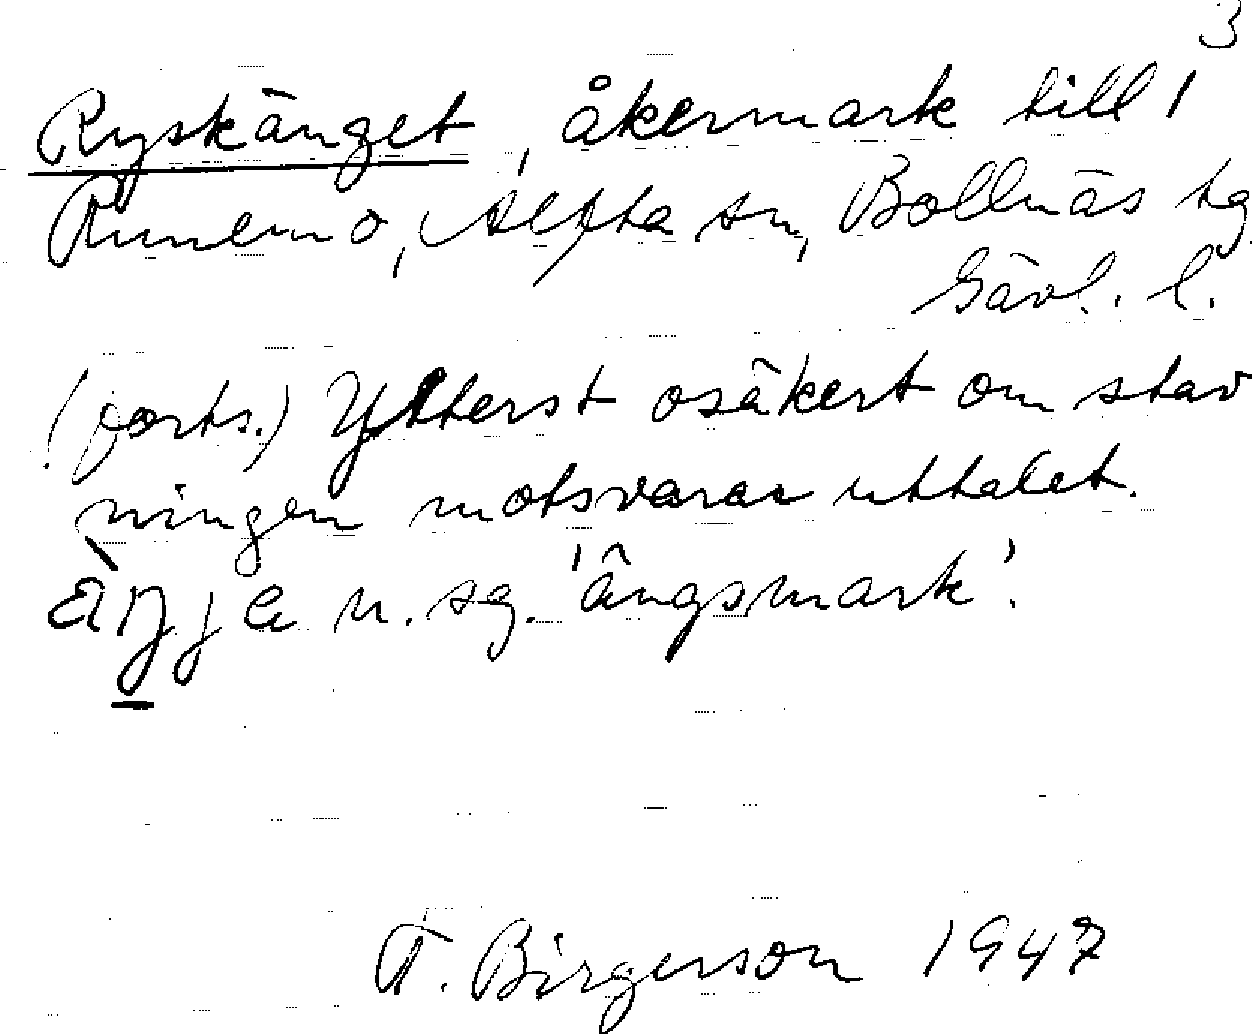 3
Ryskänget, åkermark till 1
Runemo, Alfta sn, Bollnäs tg
Gävl. l.
(forts.) Ytterst osäkert om stav
ningen motsvarar uttalet.
àŋje n. sg. 'ängsmark'.
T. Birgerson 1947